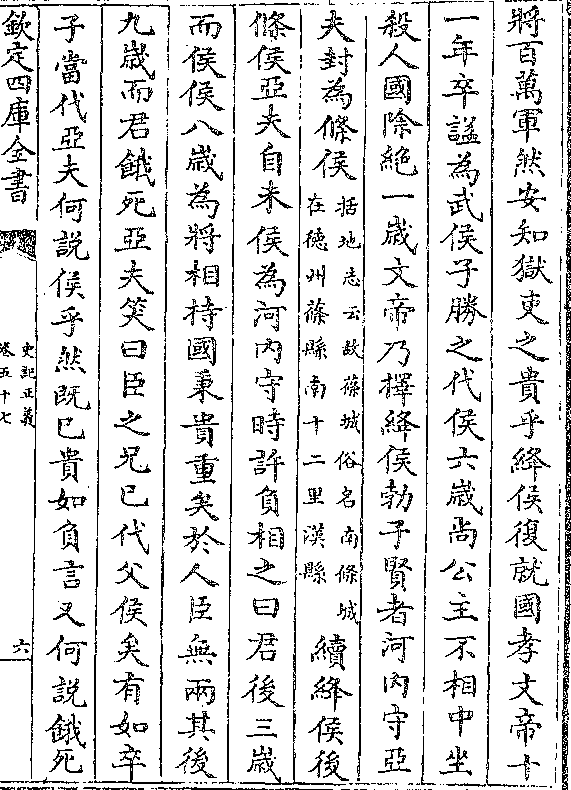 將百萬軍然安知獄吏之貴乎絳侯復就國孝文帝十
一年卒諡為武侯子勝之代侯六歲尚公主不相中坐
殺人國除絶一歲文帝乃擇絳侯勃子賢者河内守亞
夫封為條侯括地志云故蓨城俗名南條城在德州蓨縣南十二里漢縣續絳侯後
條侯亞夫自未侯為河内守時許負相之曰君後三歲
而侯侯八歲為將相持國秉貴重矣於人臣無兩其後
九歲而君餓死亞夫笑曰臣之兄已代父侯矣有如卒
子當代亞夫何說侯乎然既已貴如負言又何說餓死
欽定四庫全書
史記正義
卷五十七
六